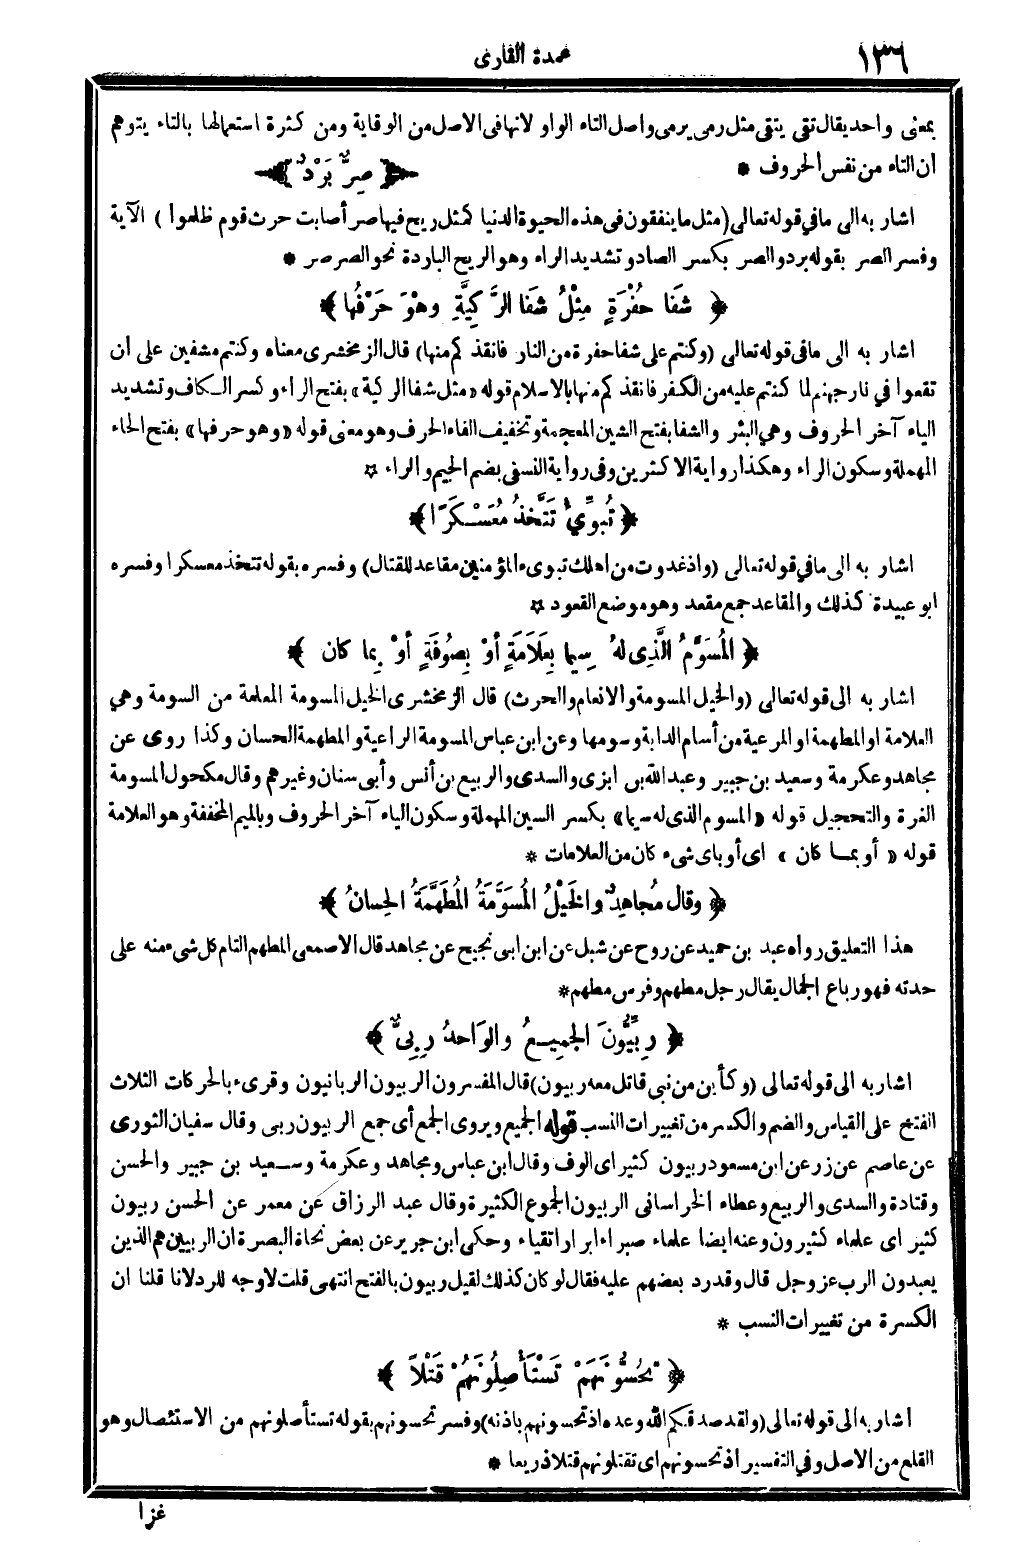 ١٣٦
عمدة القارى
بمعنى واحد يقال تقى يتقى مثل رمى يرمى واصل التاء الواو لانها فى الاصل من الوقاية ومن كثرة استعمالها بالتاء يتوهم
ان التاء من نفس الحروف *
﴿ صِرٌّ بَرْدٌ ﴾
اشار به الى ما في قوله تعالى (مثل ما ينفقون فى هذه الحيوة الدنيا كمثل ريح فيها صر أصابت حرث قوم ظلموا ) الآية
وفسر الصر بقوله برد والصر بكسر الصاد وتشديد الراء وهو الريح الباردة نحو الصرصر *
﴿ شَفَا حُفْرَةٍ مِثْلُ شَفَا الرَّكِيَّةِ وهْوَ حَرْفُها ﴾
اشار به الى ما فى قوله تعالى (وكنتم على شفا حفرة من النار فانقذكم منها) قال الزمخشرى معناه وكنتم مشفين على ان
تقعوا في نار جهنم لما كنتم عليه من الكفر فانقذكم منها بالاسلام قوله «مثل شفا الركية» بفتح الراء وكسر الكاف وتشديد
الياء آخر الحروف وهي البئر والشفا بفتح الشين المعجمة وتخفيف الفاء الحرف وهو معنى قوله «وهو حرفها» بفتح الحاء
المهملة وسكون الراء وهكذا رواية الاكثرين وفى رواية النسفى بضم الجيم والراء *
﴿ تُبَوِّئُ تَتَّخِذُ مُعَسْكَرًا ﴾
اشار به الى ما في قوله تعالى (واذ غدوت من اهلك تبوىء المؤمنين مقاعد للقتال) وفسره بقوله تتخذ معسكرا وفسره
ابو عبيدة كذلك والمقاعد جمع مقعد وهو موضع القعود *
﴿ المُسَوَّمُ الَّذِى لهُ سِيما بِعَلَامَةٍ أوْ بِصُوفَةٍ أوْ بِما كان ﴾
اشار به الى قوله تعالى (والخيل المسومة والانعام والحرث) قال الزمخشرى الخيل المسومة المعلمة من السومة وهي
العلامة او المطهمة او المرعية من أسام الدابة وسومها وعن ابن عباس المسومة الراعية والمطهمة الحسان وكذا روى عن
مجاهد وعكرمة وسعيد بن جبير وعبد الله بن ابزى والسدى والربيع بن أنس وأبى سنان وغيرهم وقال مكحول المسومة
الغرة والتحجيل قوله «المسوم الذى له سيما» بكسر السين المهملة وسكون الياء آخر الحروف وبالميم المخففة وهو العلامة
قوله « أو بما كان » اى أو باى شىء كان من العلامات *
﴿ وقال مُجاهِدٌ والخَيْلُ المُسَوَّمَةُ المُطَهَّمَةُ الحِسانُ ﴾
هذا التعليق رواه عبد بن حميد عن روح عن شبل عن ابن ابى نجيح عن مجاهد قال الاصمعى المطهم التام كل شىء منه على
حدته فهو رباع الجمال يقال رجل مطهم وفرس مطهم *
﴿ رِبِّيُّونَ الجَمِيعُ والوَاحدُ رِبِىٌّ ﴾
اشار به الى قوله تعالى (وكأين من نبى قاتل معه ربيون) قال المفسرون الربيون الربانيون وقرىء بالحركات الثلاث
الفتح على القياس والضم والكسر من تغييرات النسب قوله الجميع ويروى الجمع أى جمع الربيون ربى وقال سفيان الثورى
عن عاصم عن زر عن ابن مسعود ربيون كثير اى الوف وقال ابن عباس ومجاهد وعكرمة وسعيد بن جبير والحسن
وقتادة والسدى والربيع وعطاء الخراسانى الربيون الجموع الكثيرة وقال عبد الرزاق عن معمر عن الحسن ربيون
كثير اى علماء كثيرون وعنه ايضا علماء صبراء ابرار اتقياء وحكى ابن جرير عن بعض نحاة البصرة ان الربيين هم الذين
يعبدون الرب عز وجل قال وقد رد بعضهم عليه فقال لو كان كذلك لقيل ربيون بالفتح انتهى قلت لا وجه للرد لانا قلنا ان
الكسرة من تغييرات النسب *
﴿ تَحُسُّونَهُمْ تَسْتَأْصِلُونَهُمْ قَتْلاً ﴾
اشار به الى قوله تعالى (ولقد صدقكم الله وعده اذ تحسونهم باذنه) وفسر تحسونهم بقوله تستأصلونهم من الاستئصال وهو
القلع من الاصل وفي التفسير اذ تحسونهم اى تقتلونهم قتلا ذريعا *
غزا